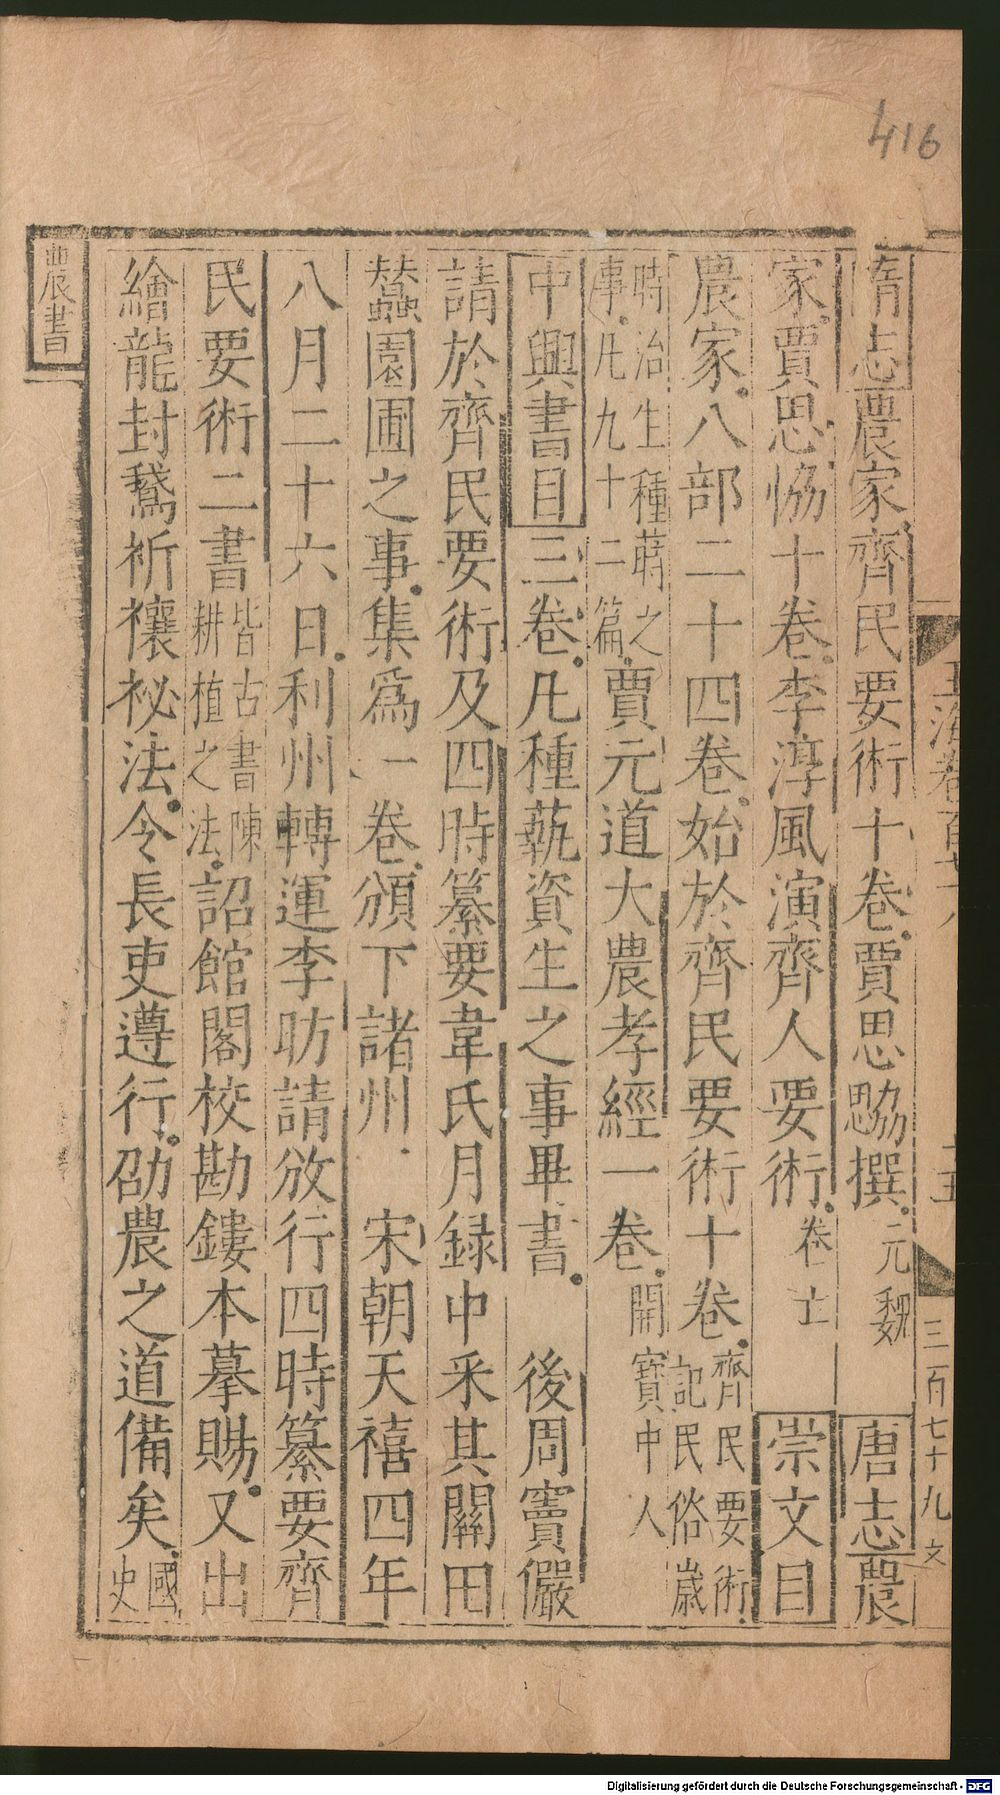 416
玉海卷百七十八
十五
三百七十九文
隋志農家齊民要術十卷賈思勰撰元魏 唐志農
家賈思恊十卷李淳風演齊人要術卷亡 崇文目
農家八部二十四卷始於齊民要術十卷齊民要術記民俗歲
時治生種蒔之事凡九十二篇賈元道大農孝經一卷開寶中人
中興書目三卷凡種蓺資生之事畢書 後周竇儼
請於齊民要術及四時纂要韋氏月録中采其關田
蠶園圃之事集爲一卷頒下諸州 宋朝天禧四年
八月二十六日利州轉運李昉請放行四時纂要齊
民要術二書皆古書陳耕植之法詔館閣校勘鏤本摹賜又出
繪龍封鵞祈禳祕法令長吏遵行劭農之道備矣國史
農書
Digitalisierung gefördert durch die Deutsche Forschungsgemeinschaft - DFG